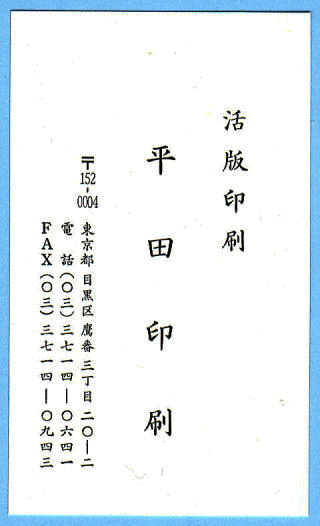 活版印刷
平田印刷
〒152-0004
東京都目黒区鷹番三丁目二〇―二
電話(〇三)三七一四―〇六四一
FAX(〇三)三七一四―〇九四三